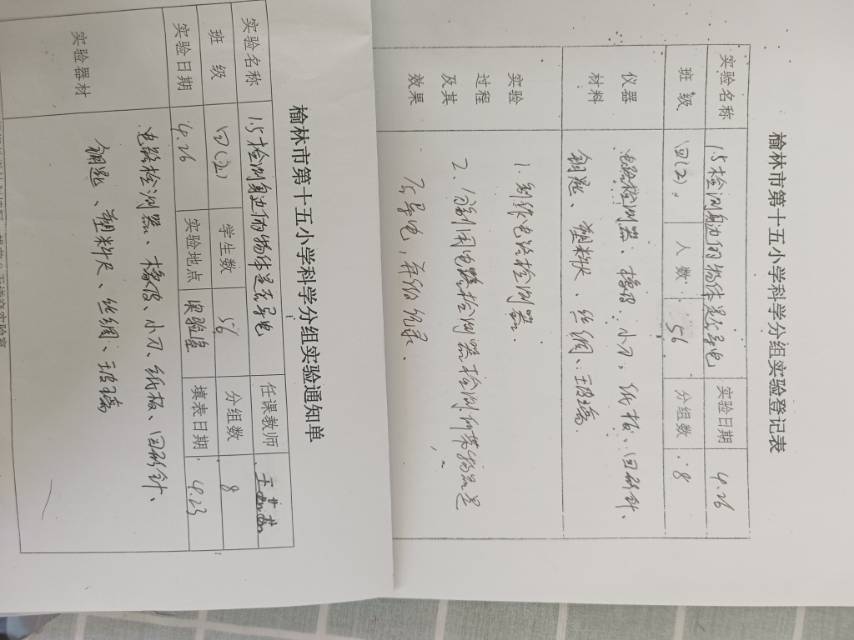 榆林市第十五小学科学分组实验登记表
实验名称 1.5检测身边的物体是否导电 实验日期 4.26
班级 四(2) 人数 56 分组数 8
仪器材料 电路检测器、橡皮、小刀、纸板、回形针、
钥匙、塑料尺、丝绸、玻璃.
实验过程及其效果 1. 制作电路检测器.
2. 分别用电路检测器检测所带物品是
否导电,并做记录.
榆林市第十五小学科学分组实验通知单
实验名称 1.5检测身边的物体是否导电 任课教师
班级 学生数 56 分组数 8
实验日期 4.26 实验地点 实验室 填表日期 4.23
实验器材 电路检测器、橡皮、小刀、纸板、回形针、
钥匙、塑料尺、丝绸、玻璃